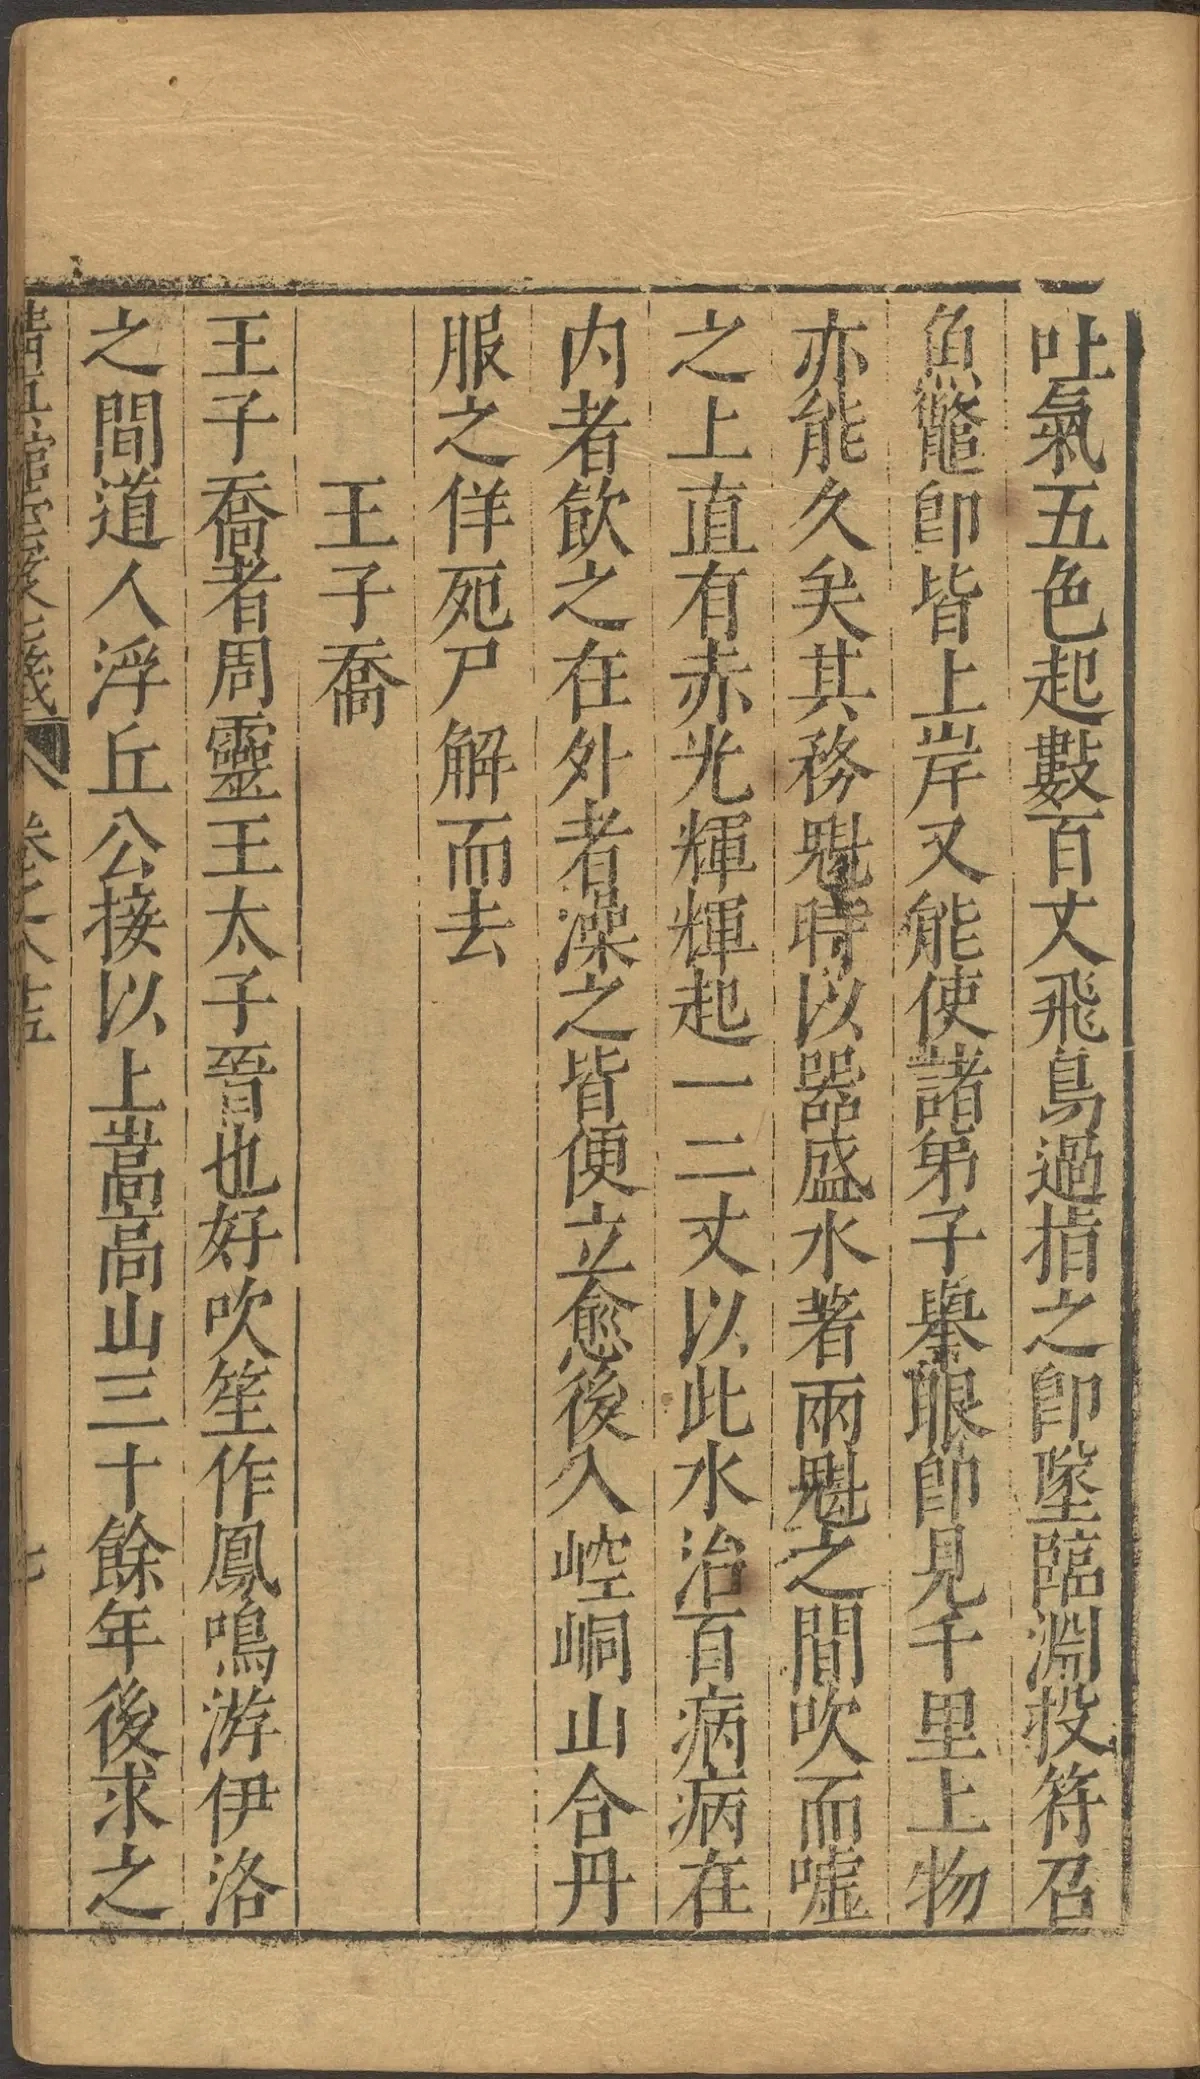 吐氣五色起數百丈飛鳥過指之卽墜臨淵投符召
魚鼈卽皆上岸又能使諸弟子舉眼卽見千里上物
亦能久矣其務魁時以器盛水著兩魁之間吹而噓
之上直有赤光輝輝起一二丈以此水治百病病在
内者飲之在外者澡之皆便立愈後入崆峒山合丹
服之佯死尸解而去
王子喬
王子喬者周靈王太子晉也好吹笙作鳳鳴游伊洛
之間道人浮丘公接以上嵩高山三十餘年後求之
卷之十五
七